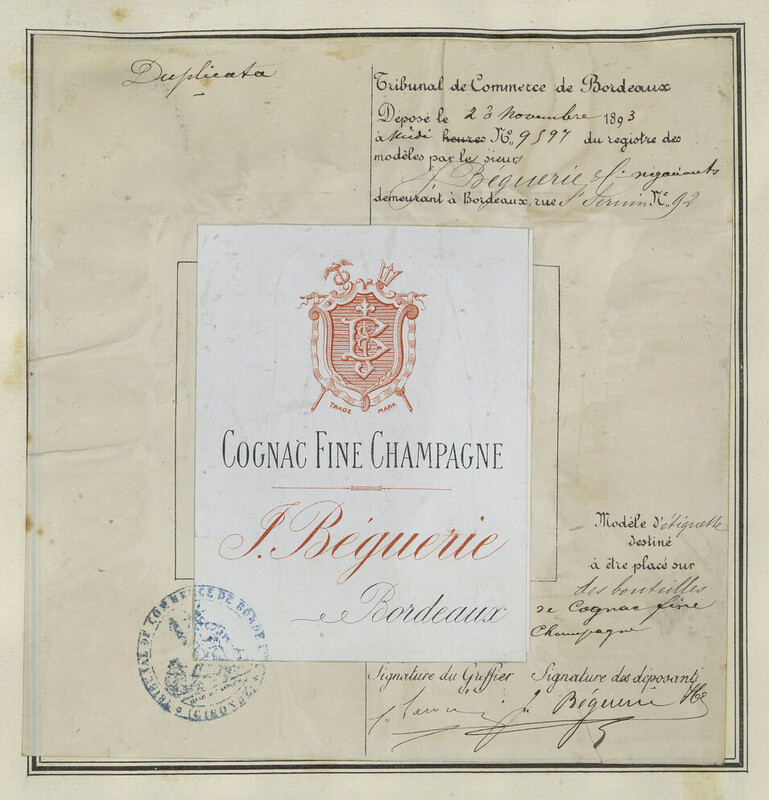 Duplicata
Tribunal de Commerce de Bordeaux
Déposé le 23 Novembre 1893
à Midi heures N° 9597 du registre des
modèles par les sieurs
J. Béguerie & Cie négociants
demeurant à Bordeaux, rue St Sernin N° 92
JB
TRADE MARK
COGNAC FINE CHAMPAGNE
J. Béguerie
Bordeaux
Modèle d'étiquette
destiné
à être placé sur
des bouteilles
de Cognac fine
Champagne
TRIBUNAL DE COMMERCE DE BORDEAUX
(GIRONDE)
Signature du Greffier Signature des déposants
J. Béguerie